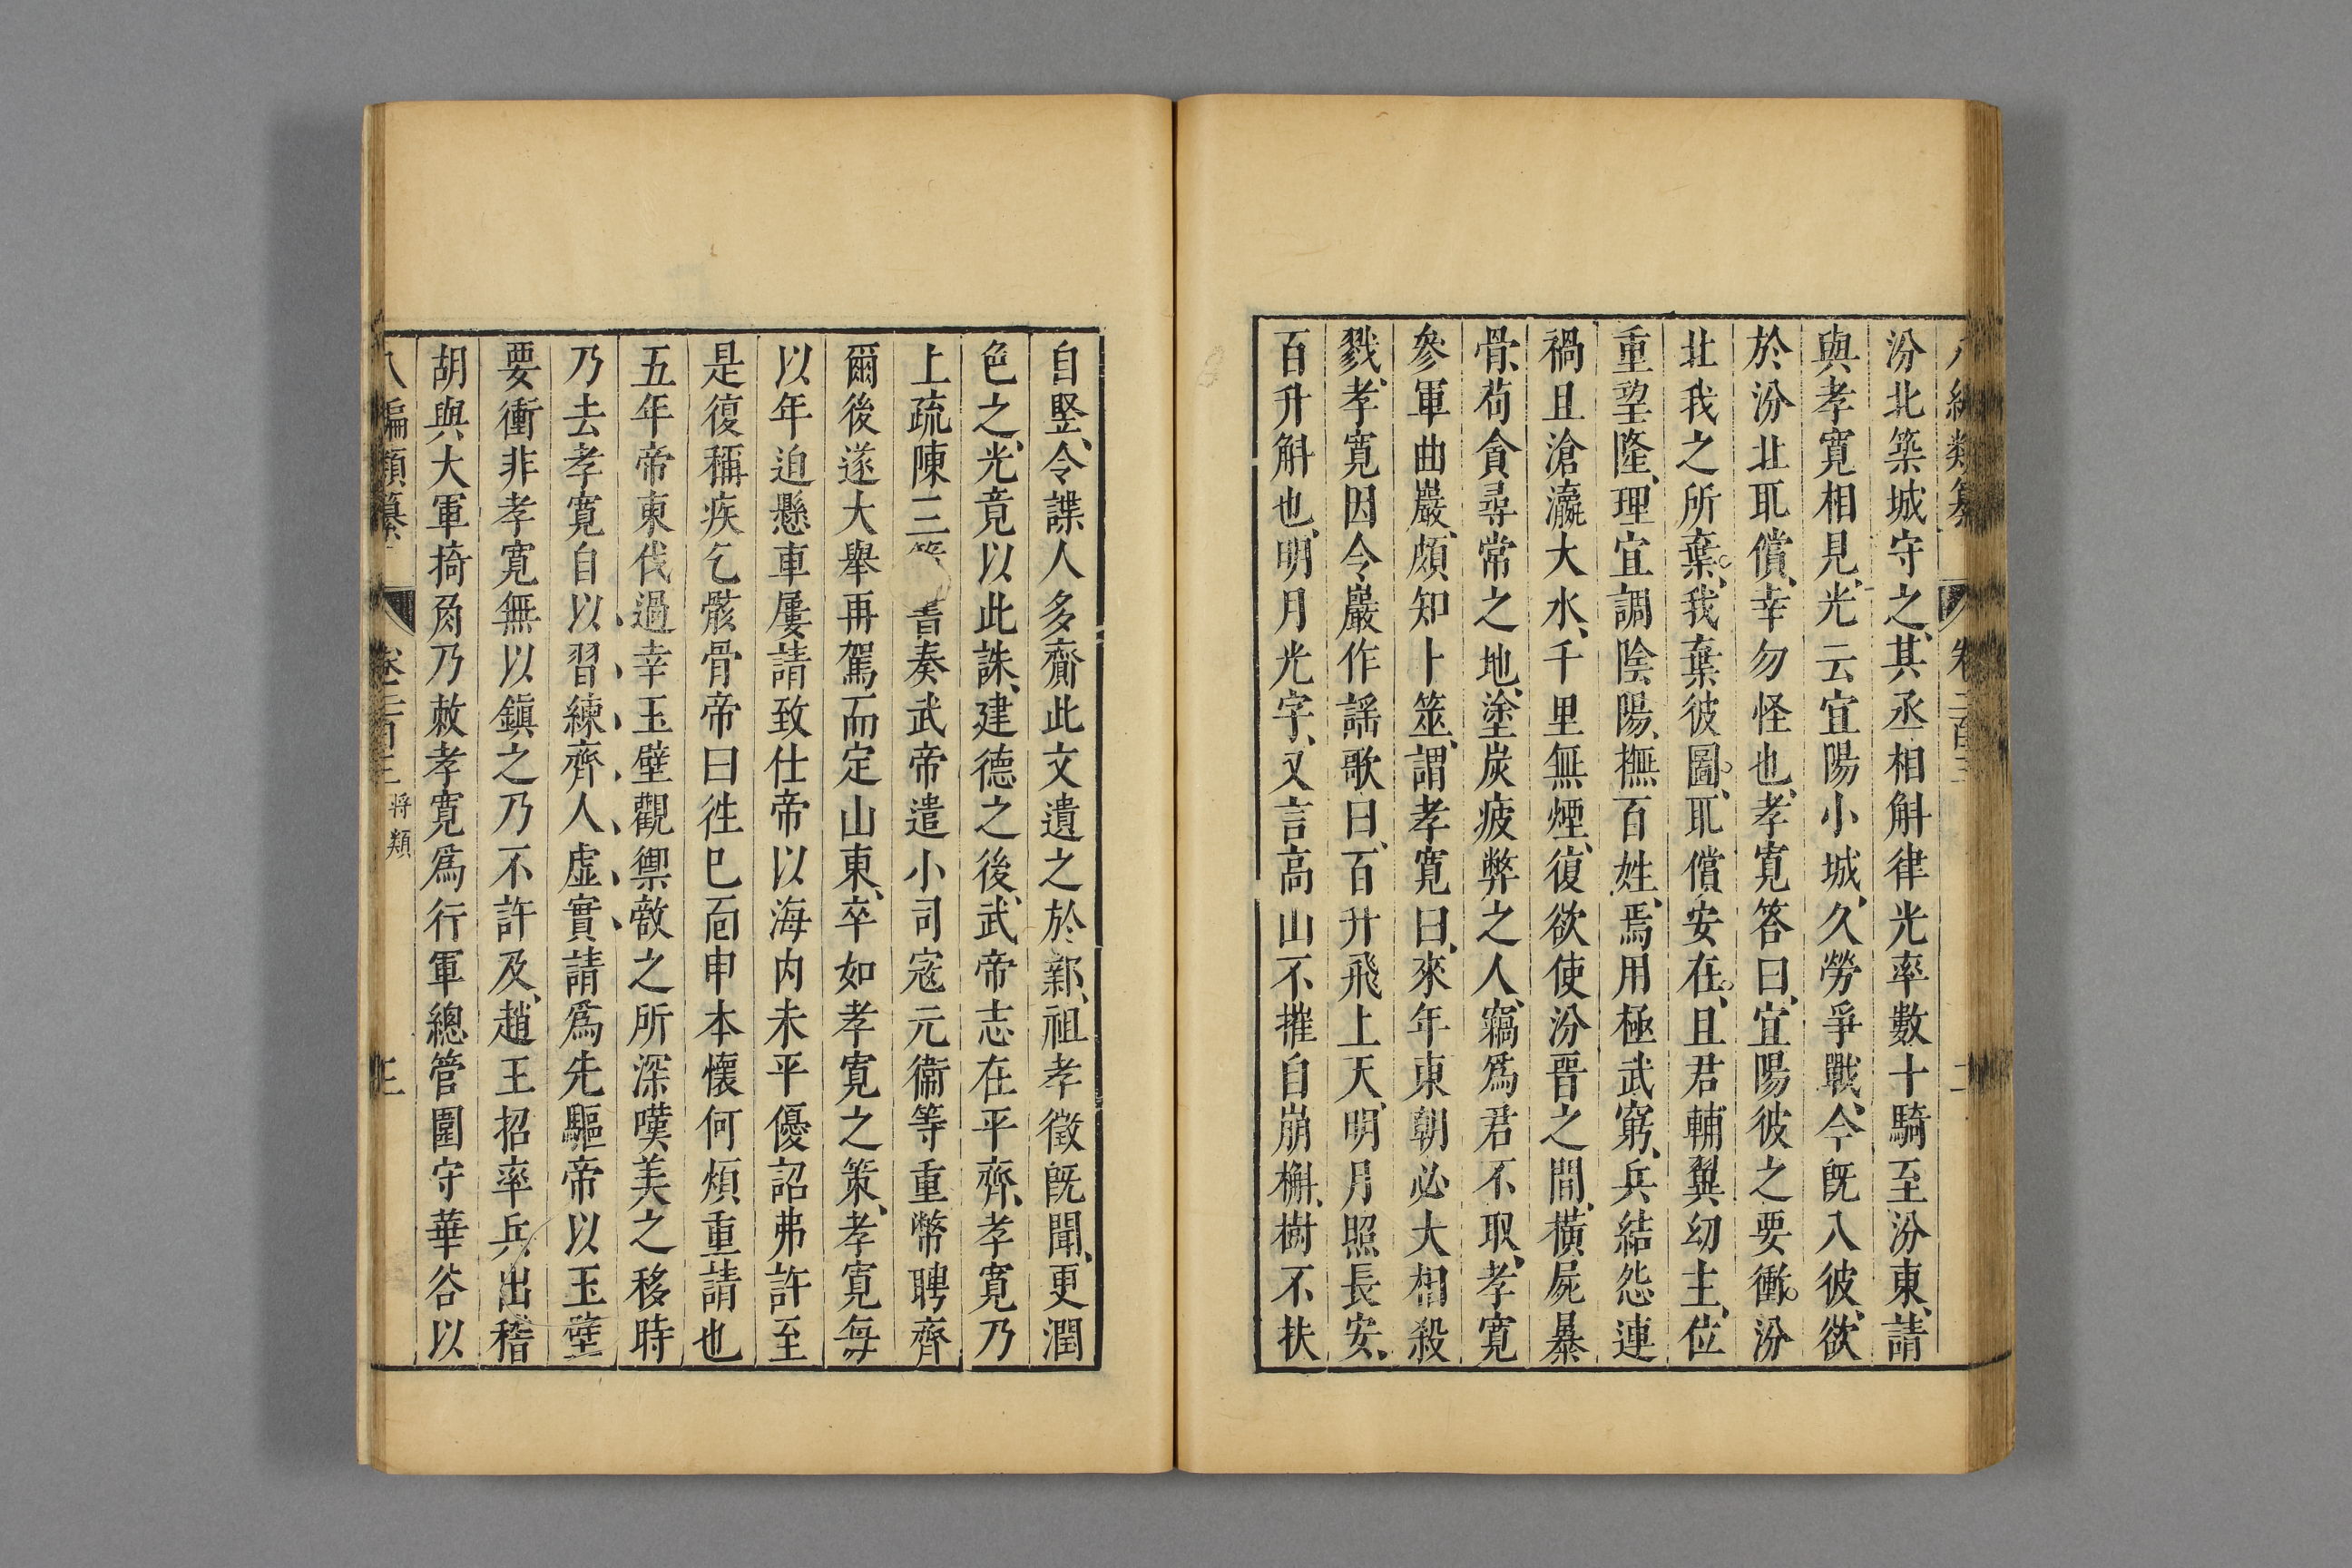 汾北築城守之其丞相斛律光率數十騎至汾東請
與孝寬相見光云宜陽小城久勞爭戰今旣入彼欲
於汾北取償幸勿怪也孝寬答曰宜陽彼之要衝汾
北我之所棄我棄彼圖取償安在且君輔翼幼主位
重望隆理宜調陰陽撫百姓焉用極武窮兵結怨連
禍且滄瀛大水千里無煙復欲使汾晉之間橫屍暴
骨苟貪尋常之地塗炭疲弊之人竊爲君不取孝寬
參軍曲巖頗知卜筮謂孝寬曰來年東朝必大相殺
戮孝寬因令巖作謠歌曰百升飛上天明月照長安
百升斛也明月光字又言高山不摧自崩槲樹不扶
自竪令諜人多齎此文遺之於鄴祖孝徵旣聞更潤
色之光竟以此誅建德之後武帝志在平齊孝寬乃
上疏陳三 書奏武帝遣小司寇元衞等重幣聘齊
爾後遂大舉再駕而定山東卒如孝寬之策孝寬每
以年迫懸車屢請致仕帝以海内未平優詔弗許至
是復稱疾乞骸骨帝曰徃巳面申本懷何煩重請也
五年帝東伐過幸玉壁觀禦敵之所深嘆美之移時
乃去孝寬自以習練齊人虛實請爲先驅帝以玉壁
要衝非孝寬無以鎭之乃不許及趙王招率兵出稽
胡與大軍掎角乃敕孝寬爲行軍總管圍守華谷以
八編類纂 卷二百三 将類 三